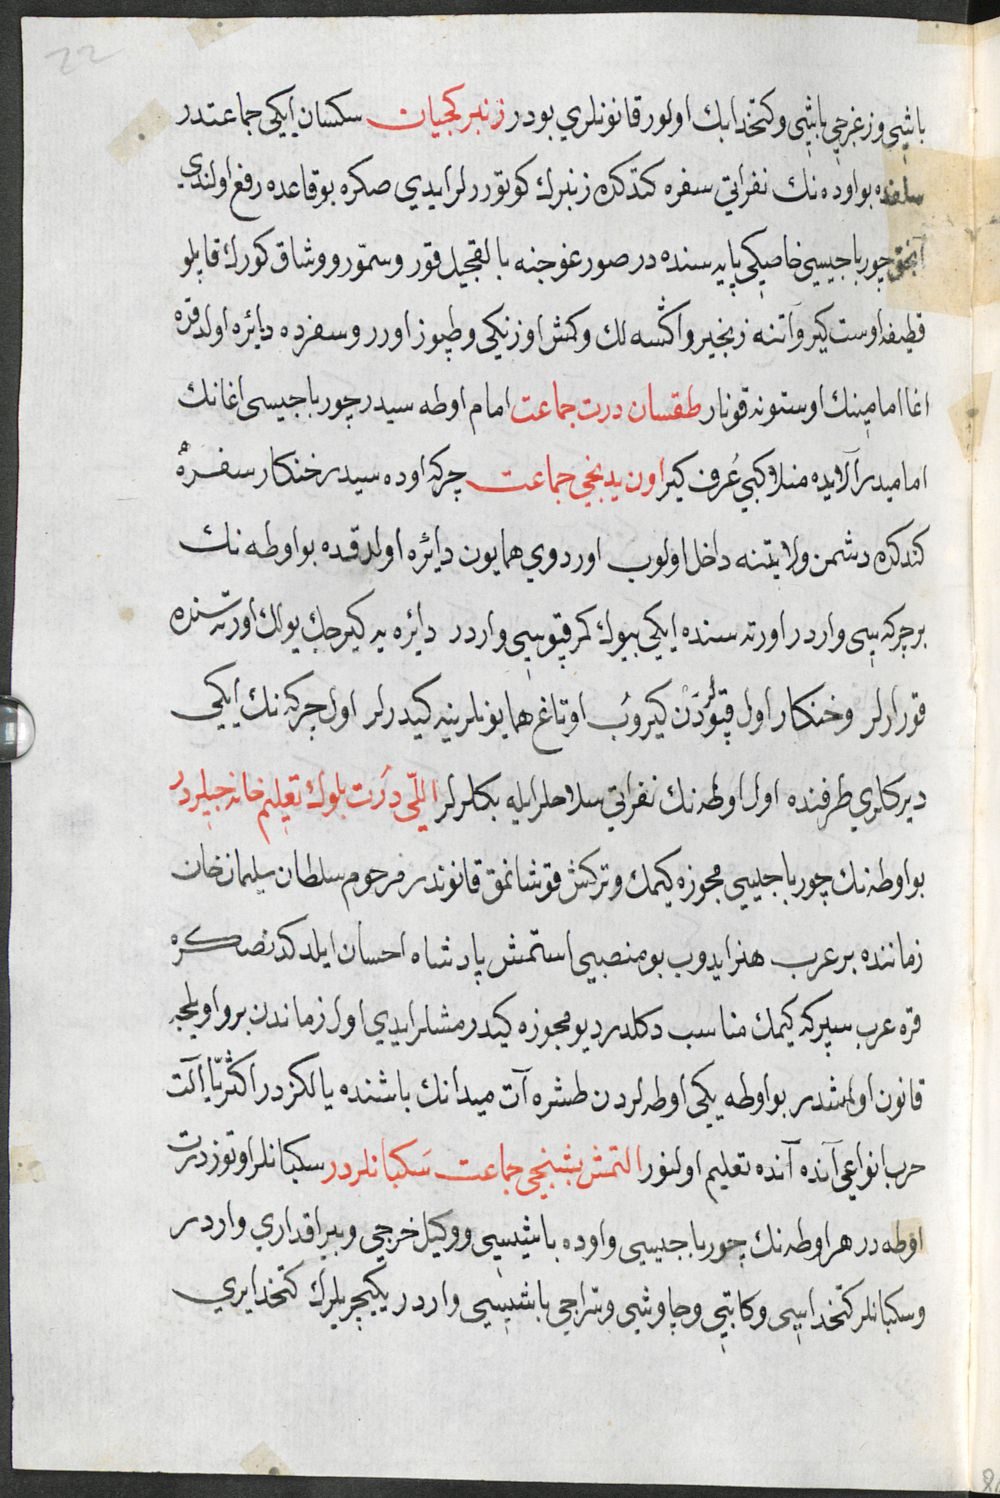 22
باشي وزغرجي باشي وكتخدا بك اولور قانونلري بودر زنبركجيان سكسان ايكي جماعتدر
سلفده بو اوده نك نفراتي سفره كتدكده زنبرك كوتوررلر ايدي صكره بو قاعده رفع اولندي
آنجق چورباجيسي خاصيكي پايه سنده در صورغوجنه بالقجيل قور وسمور ووشاق كورك قاپلو
قطيفه اوست كير وآتنه زنجير واكسه لك وكمش اوزنكي وطپوز اورر وسفرده دايره اولدقده
اغا امامينك اوستونه قونار طقسان درت جماعت امام اوطه سيدر چورباجيسي اغانك
اماميدر آلايده منلا كبي عرف كير اون يدنجي جماعت چركه اوده سيدر خنكار سفره
كتدكده دشمن ولايتنه داخل اولوب اوردوي همايون دايره اولدقده بو اوطه نك
بر چركه سي واردر اورته سنده ايكي بيوك كمر قپوسي واردر دايره يه كيرجك يولك اورته سنده
قورارلر وخنكار اول قپودن كيروب اوتاغ همايونلرينه كيدرلر اول چركه نك ايكي
ديركلري طرفنده اول اوطه نك نفراتي سلاحلر ايله بكلرلر اللي درت بلوك تعليم خانه جيلردر
بو اوطه نك چورباجيسي مجوزه كيمك وتركش قوشانمق قانوندر مرحوم سلطان سليمان خان
زماننده بر عرب هنر ايدوب بو منصبي استمش پادشاه احسان ايلدكدنصكره
قره عرب سپركه كيمك مناسب دكلدر ديو مجوزه كيدرمشلر ايدي اول زماندن برو اويلجه
قانون اولمشدر بو اوطه يكي اوطه لردن طشره آت ميدانك باشنده يالكزدر اكثريا آلت
حرب انواعي آنده آنده تعليم اولنور التمش بشنجي جماعت سكبانلردر سكبانلر اوتوز درت
اوطه در هر اوطه نك چورباجيسي واوده باشيسي ووكيل خرجي وبيراقداري واردر
وسكبانلر كتخداسي وكاتبي وچاوشي وسراجي باشيسي واردر يكيچريلرك كتخدا يري